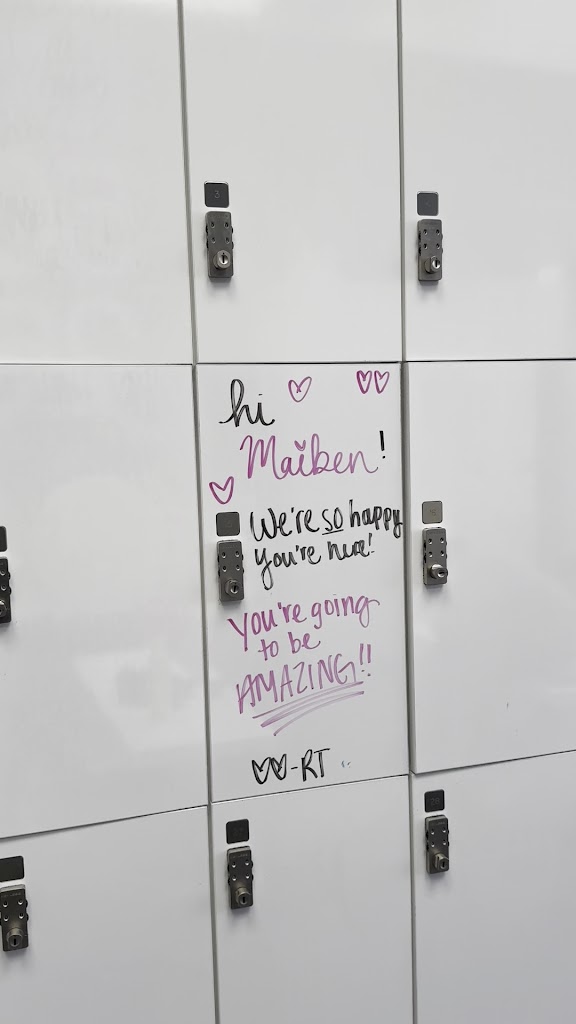 hi
Maiben!
We're so happy
you're here!
You're going
to be
AMAZING!!
-RT